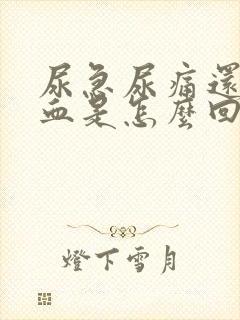 尿急尿痛還
血是怎麼回
燈下雪月